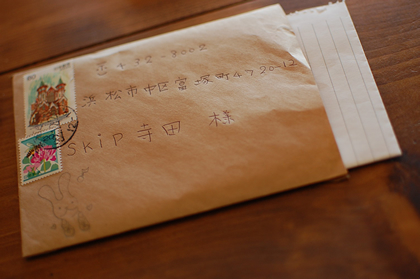 〒432-8002
浜松市中区富塚町4720-12
Skip 寺田 様